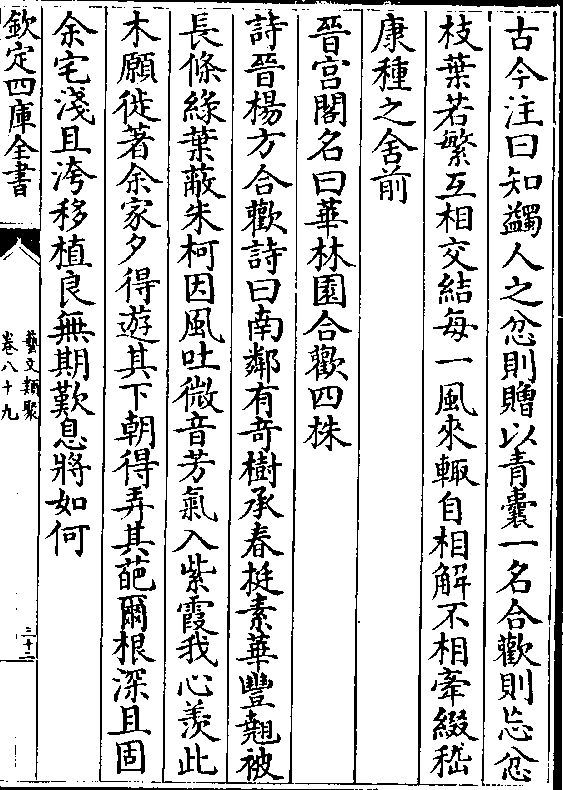 古今注曰知蠲人之忿則贈以青囊一名合歡則忘忿
枝葉若繁互相交結每一風來輙自相解不相牽綴嵇
康種之舍前
晉宫閣名曰華林園合歡四株
詩晉楊方合歡詩曰南鄰有竒樹承春挺素華豐翹被
長條緑葉蔽朱柯因風吐微音芳氣入紫霞我心羨此
木願徙著余家夕得遊其下朝得弄其葩爾根深且固
余宅淺且洿移植良無期歎息將如何
欽定四庫全書
藝文類聚
卷八十九
三十二